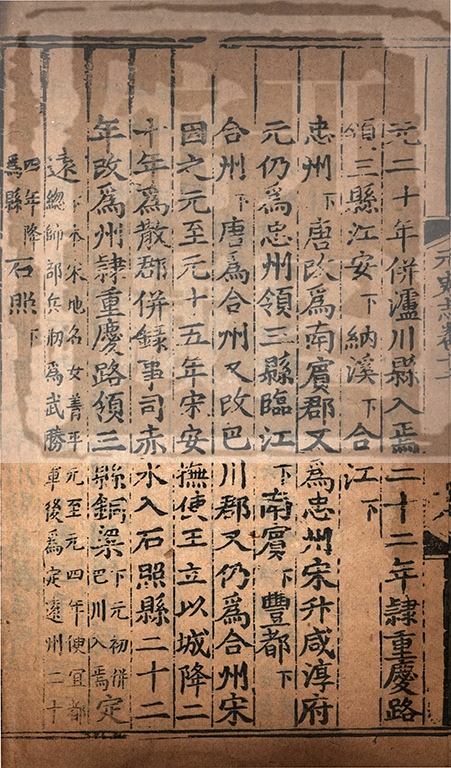 元史志卷十二
元二十年併瀘川縣入焉二十二年隸重慶路
領三縣江安下納溪下合江下
忠州下唐改為南賓郡又為忠州宋升咸淳府
元仍為忠州領三縣臨江下南賓下豐都下
合州下唐為合州又改巴川郡又仍為合州宋
因之元至元十五年宋安撫使王立以城降二
十年為散郡併錄事司赤水入石照縣二十二
年改為州隸重慶路領三縣銅梁下元初併巴川入焉定
遠下本宋地名女菁平元至元四年便宜都總帥部兵刱為武勝軍後為定遠州二十
四年降為縣石照下